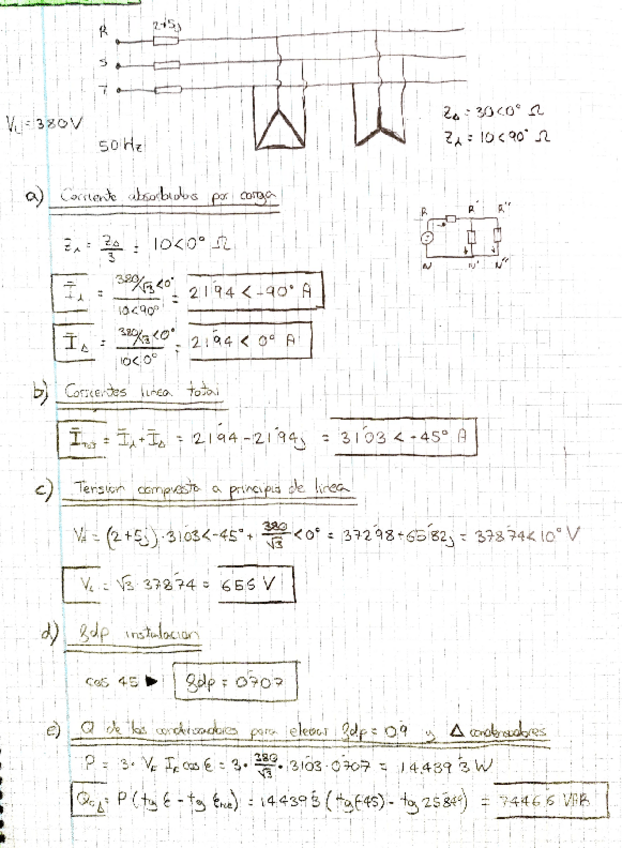 R 2+5j
S
T
V_L = 380V
50 Hz
Z_Δ = 30<0° Ω
Z_λ = 10<90° Ω
a) Corriente absorbidas por carga
Z_λ = Z_Δ/3 = 10<0° Ω
R R' R''
N N' N''
Ī_λ = 380/√3<0° / 10<90° = 21'94 <-90° A
Ī_Δ = 380/√3<0° / 10<0° = 21'94 < 0° A
b) Corrientes linea total
Ī_TOT = Ī_λ + Ī_Δ = 21'94 - 21'94j = 31'03 <-45° A
c) Tension compuesta a principio de linea
= (2+5j)·31'03<-45° + 380/√3 <0° = 372'98+65'82j = 378'74<10° V
V_L = √3·378'74 = 655 V
d) gdp instalacion
cos 45 ▶ gdp = 0'707
e) Q de los condensadores para elevar gdp = 0'9 y Δ condensadores
P = 3· V_F I_F cos φ = 3· 380/√3 · 31'03 · 0'707 = 14439'3 W
Q_CΔ = P (tg φ - tg ) = 14439'3 (tg(-45) - tg 25'84°) = 7446'6 VAR